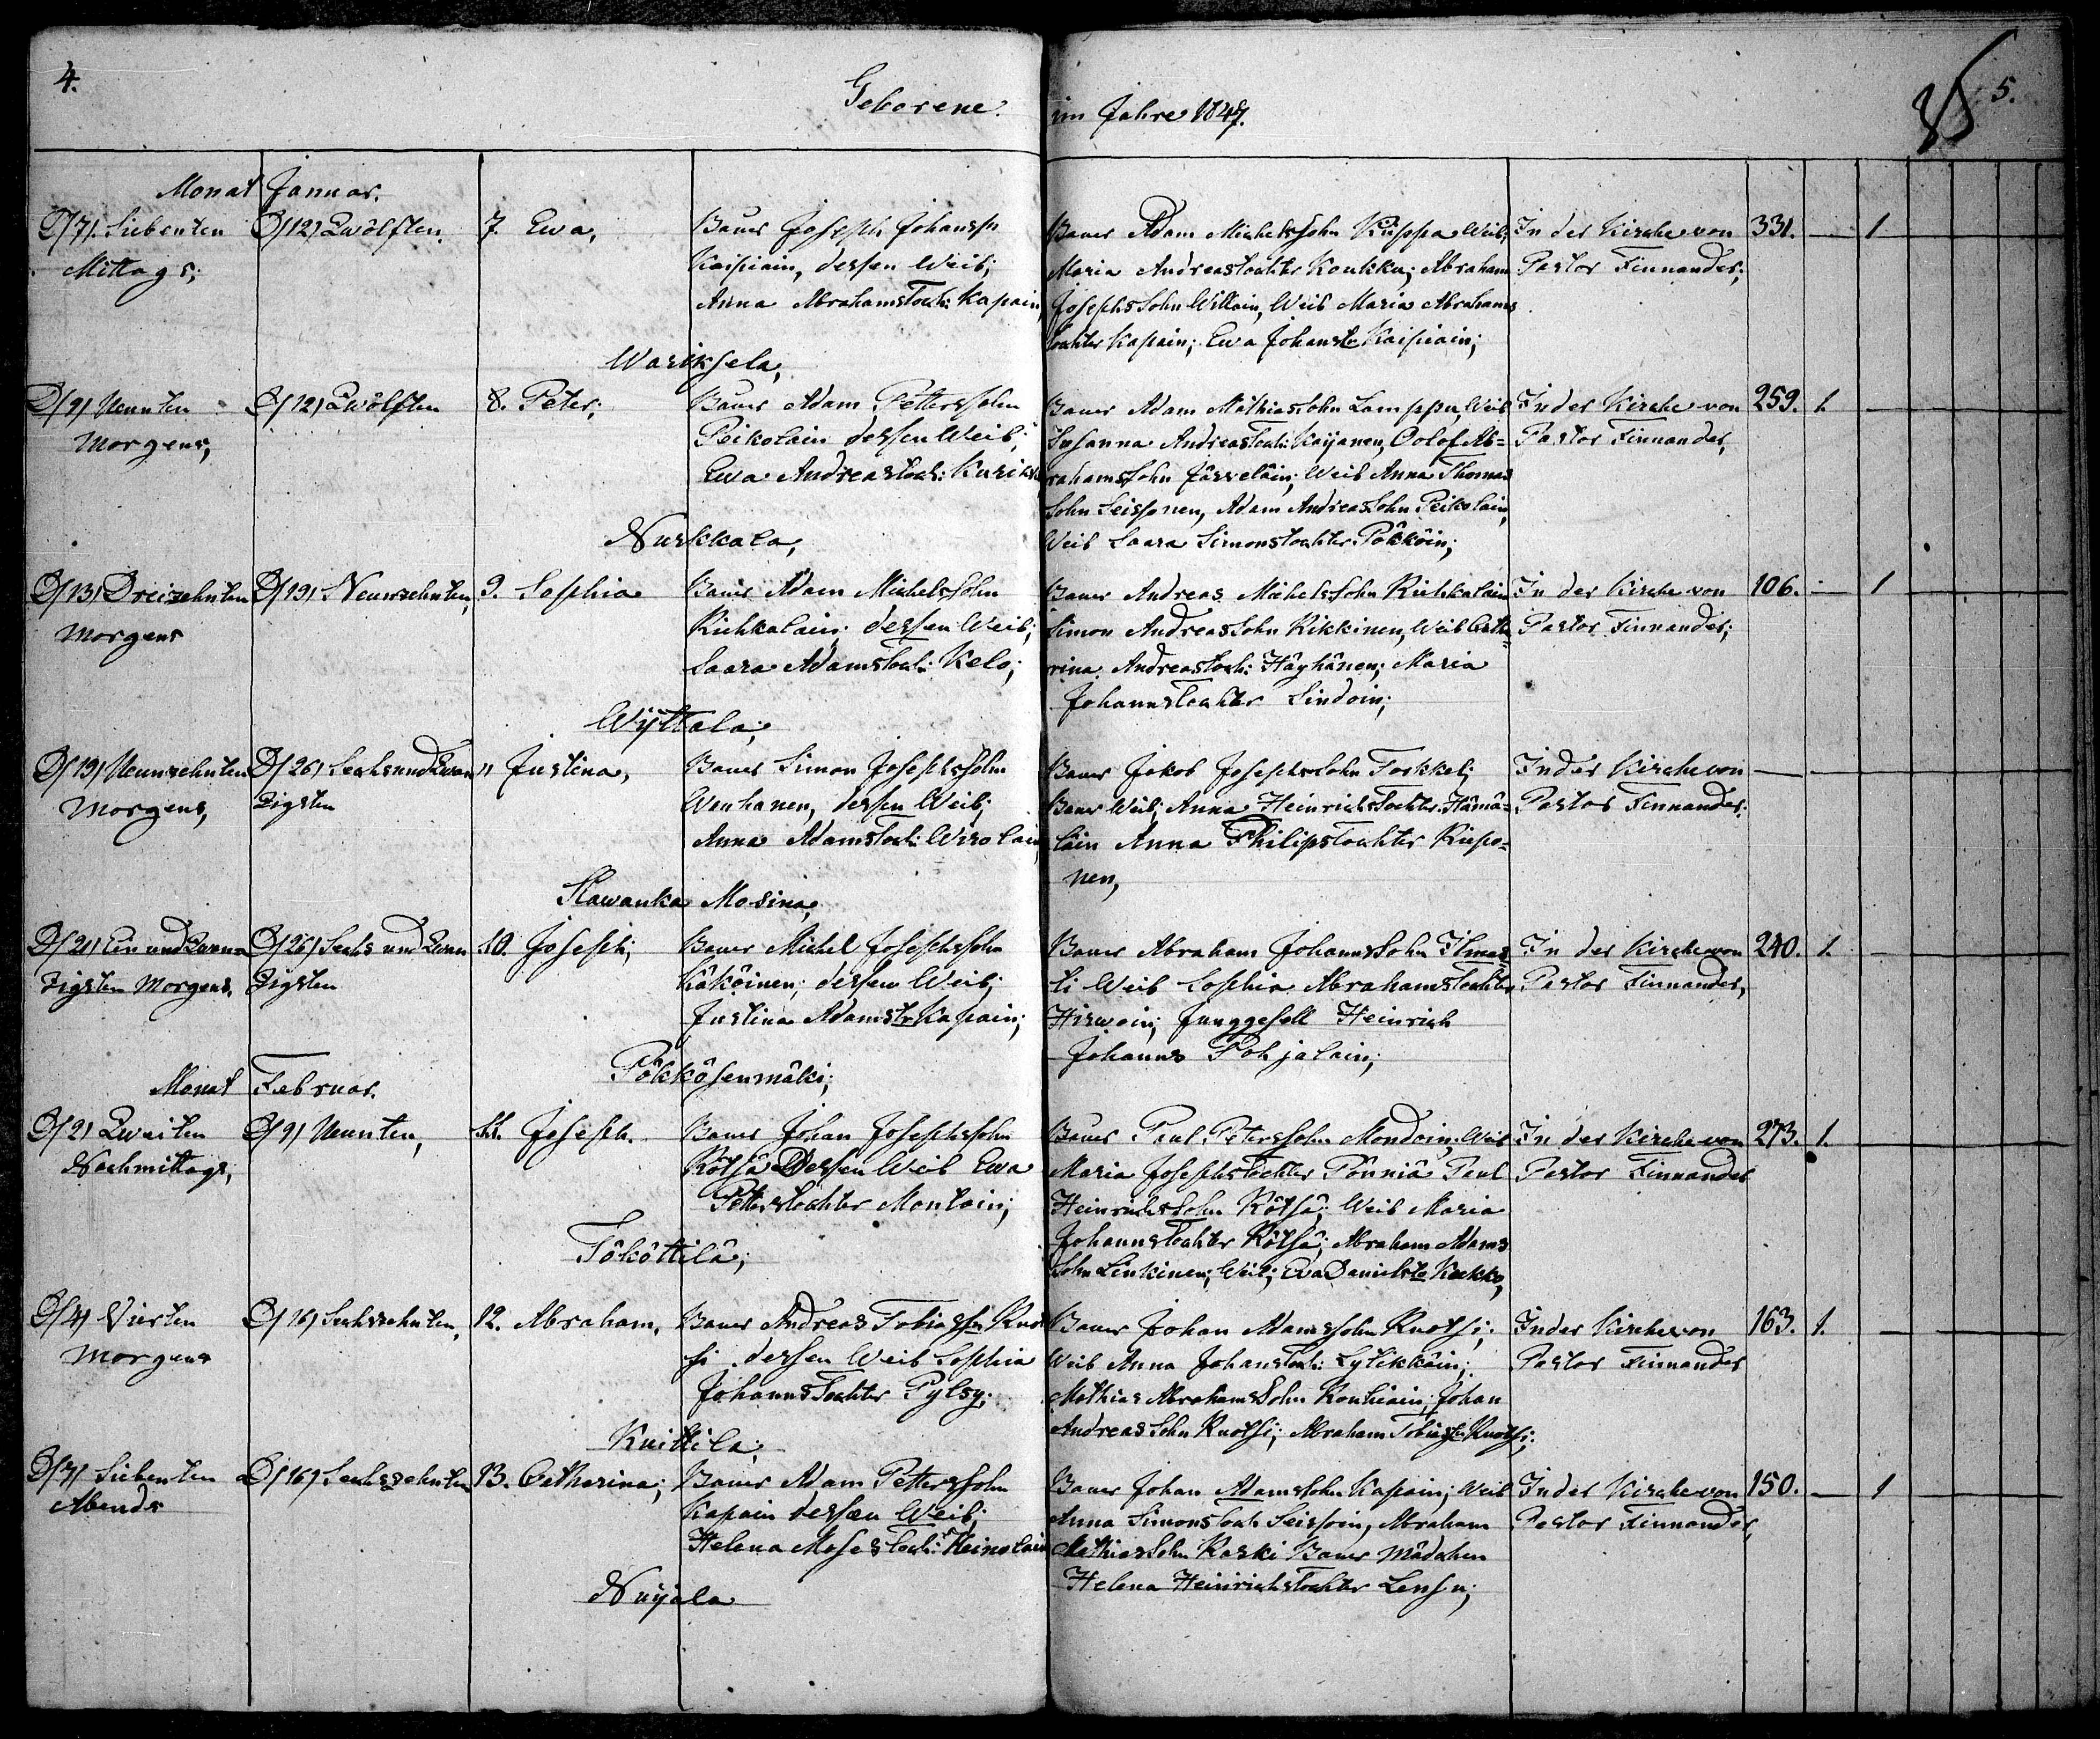 4.
Geborene
im Jahre 1847.
5.
85
Monat Januar.
D/7/. Siebenten
Mittags;
D/12/ Zwölften.
7. Ewa,
Bauer Joseph Johanssn
Kaipiain, dessen Weib;
Anna Abrahamstoch: Kapain,
Wariksela,
Bauer Adam Michelssohn Kuppa Weib;
Maria Andreastochter Koukku; Abraham
Josephssohn Willain, Weib Maria Abrahams
tochter Kapain; Ewa Johanstr Kaipiain;
In der Kirche von
Pastor Finnander;
331. — 1
D/9/ Neunten
Morgens;
D/12/ Zwölften
8. Peter;
Bauer Adam Petterssohn
Peikolain dessen Weib;
Ewa Andreastoch:
Nurkkala,
Bauer Adam Mathiassohn Lamppu Weib
Susanna Andreastoch: Kaijanen, Oolof Ab-
rahamssohn Järveläin; Weib Anna Thomas
sohn Seissonen, Adam Andreassohn Peikolain,
Weib Saara Simonstochter Pökköin;
In der Kirche von
Pastor Finnander,
259. 1. —
D/13/ Dreizehnten
Morgens
D/19/ Neunzehnten,
9. Sophia
Bauer Adam Michelssohn
Kuhkalain; dessen Weib;
Saara Adamstoch: Kelo;
Wyttala;
Bauer Andreas Michelssohn Kuhkalain
Simon Andreassohn Kikkinen, Weib Cathe-
rina Andreastoch: Häyhänen; Maria
Johannstochter Lindoin;
In der Kirche von
Pastor Finnander;
106. — 1
D/19/ Neunzehnten
Morgens,
D/26/ Sechsundzwan
zigsten
" Justina,
Bauer Simon Josephssohn
Wenhanen, dessen Weib;
Anna Adamstoch: Wirolain,
Slawanka Mosina,
Bauer Jakob Josephssohn Torkkeli
Bauer Weib; Anna Heinrichstochter Hämä-
läin Anna Philipstochter Kiepo-
nen,
In der Kirche von
Pastor Finnander;
— —
D/21/ Ein und Zwan-
zigsten Morgens.
D/26/ Sechs und Zwan
zigsten
10. Joseph;
Bauer Michel Josephssohn
Käköinen; dessen Weib;
Justina Adamstr Kapain;
Pökkösenmäki;
Bauer Abraham Johannssohn Ilmas-
ti Weib Sophia Abrahamstochter
Hirwoin; Junggesell Heinrich
Johanns Pohjalain;
In der Kirche von
Pastor Finnander,
240. 1. —
Monat Februar.
D/2/ Zweiten
Nachmittags,
D/9/ Neunten,
11. Joseph.
Bauer Johan Josephssohn
Rötsä Dessen Weib Ewa
Petterstochter Montoin;
Tököttilä;
Bauer Paul Peterssohn Mondoin, Weib
Maria Josephstochter Pönniä Paul
Heinrichssohn Rötsä; Weib Maria
Johannstochter Rötsä; Abraham Adams
sohn Linkinen; Weib; Eva Danielstr Kukko,
In der Kirche von
Pastor Finnander
273. 1. —
D/4/ Vierten
Morgens
D/16/ Sechszehnten,
12. Abraham,
Bauer Andreas Tobiassn Ruot
si dessen Weib Sophia
Johannstochter Pylsy;
Knittila;
Bauer Johan Adamssohn Ruotsi;
Weib Anna Johanstoch: Lytikkäin;
Mathias Abrahamssohn Kouhiain, Johan
Andreassohn Ruotsi; Abraham Tobiassn Ruotsi;
In der Kirche von
Pastor Finnander
163. 1. —
D/7/ Siebenten
Abends
D/16/ Sechszehnten
13. Catharina;
Bauer Adam Petterssohn
Kapain dessen Weib;
Helena Mosestoch: Heinolain
Nuijala
Bauer Johan Adamssohn Kapain; Weib
Anna Simonstoch Seissoin, Abraham
Mathiassohn Kaski Bauer Mädchen
Helena Heinrichstochter Lensu;
In der Kirche von
Pastor Finnander,
150. — 1